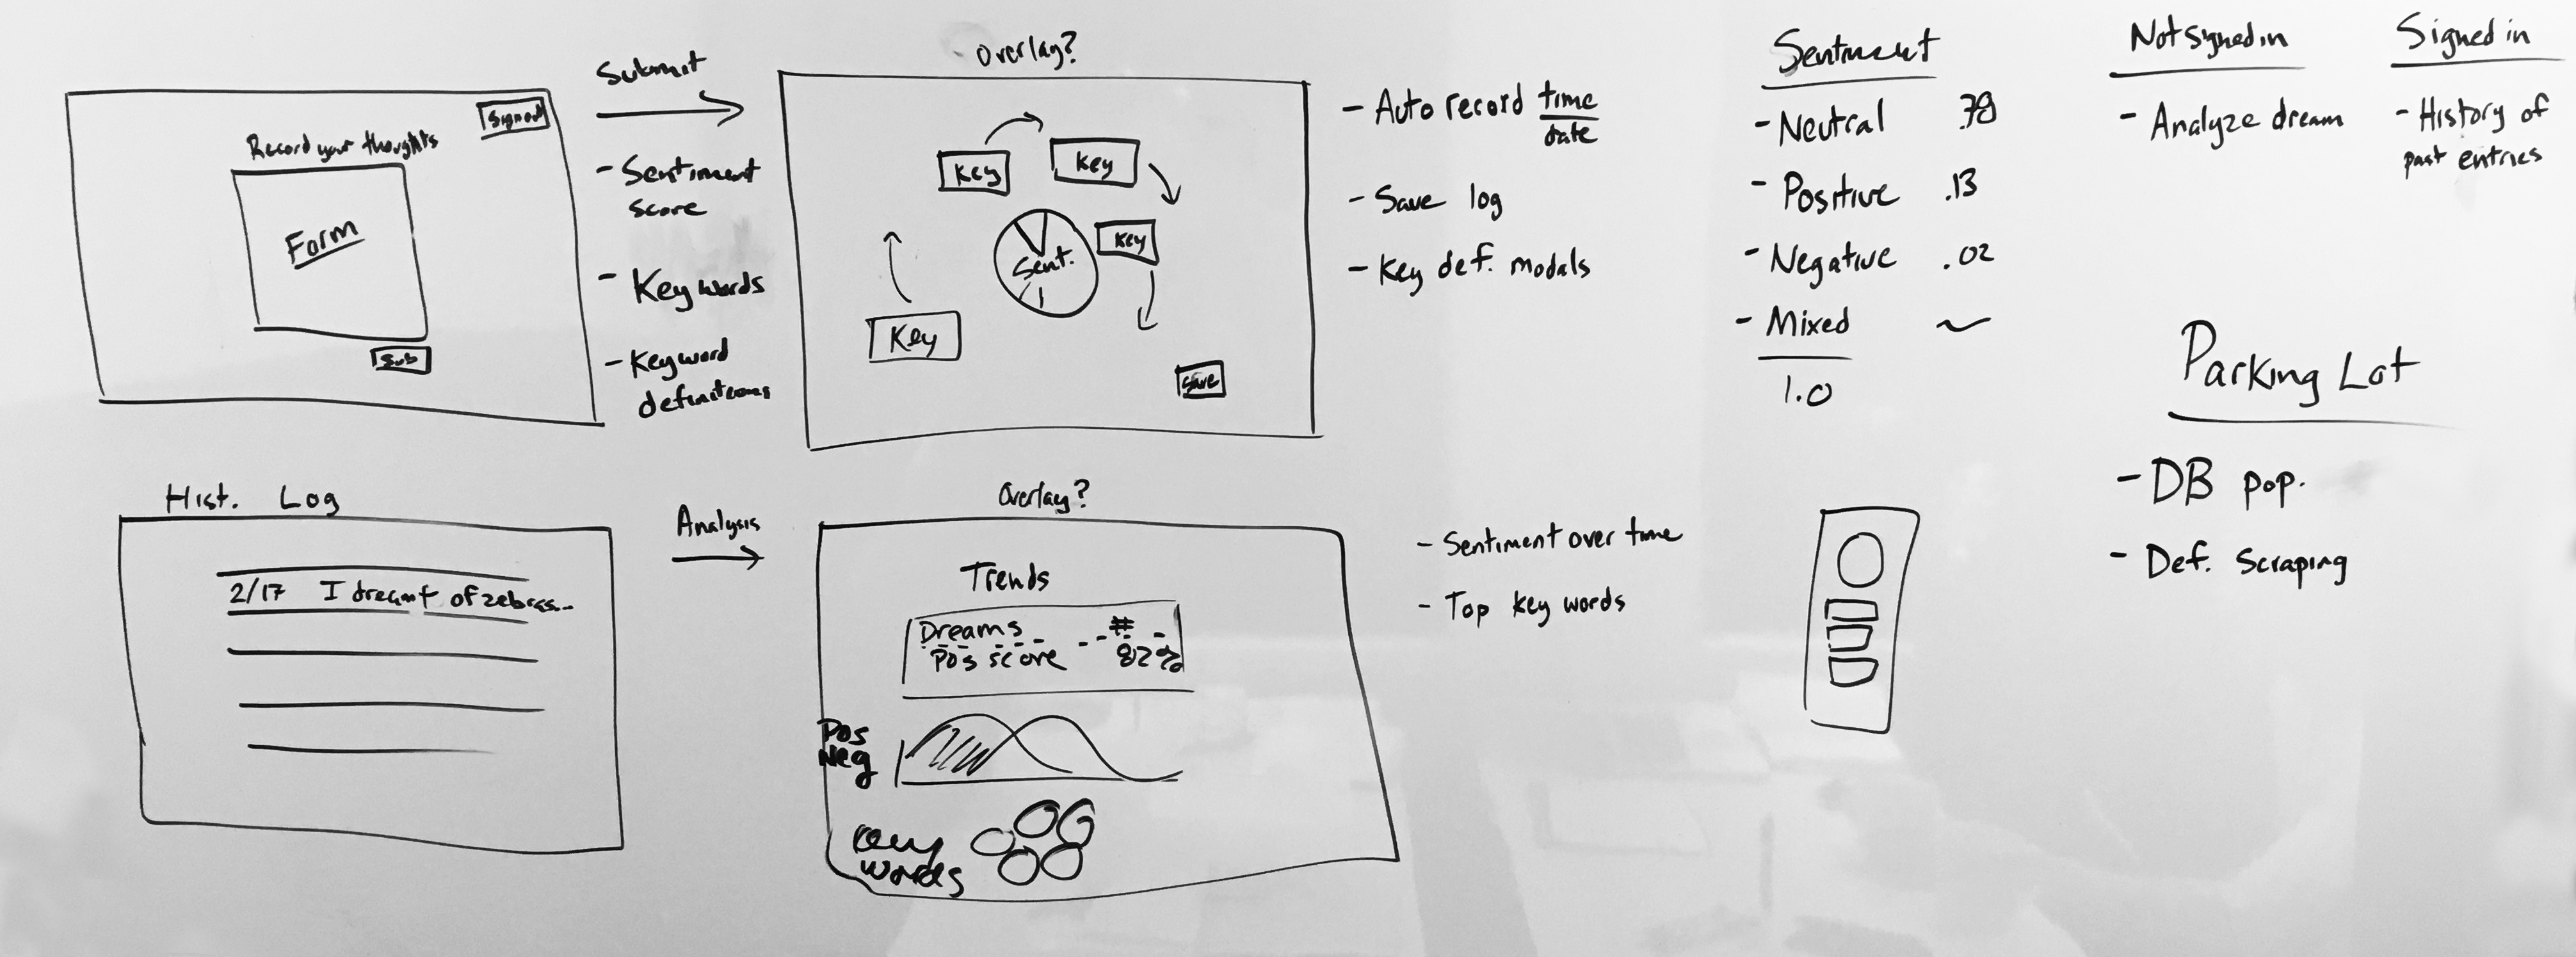 Record your thoughts
Form
Sub
Submit
- Sentiment
score
- Key words
- Keyword
definitions
Overlay?
Key
Key
Key
Key
Sent.
Save
- Auto record time
date
- Save log
- Key def. modals
Sentiment
- Neutral .78
- Positive .13
- Negative .02
- Mixed ~
1.0
Not signed in
- Analyze dream
Signed in
- History of
past entries
Parking Lot
- DB pop.
- Def. Scraping
Hist. Log
2/17 I dreamt of zebras...
Analysis
Overlay?
Trends
Dreams #
Pos score 82%
Pos
Neg
Key
words
- Sentiment over time
- Top key words